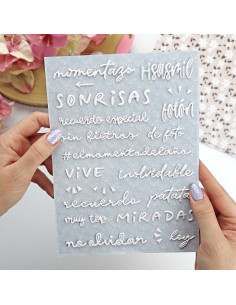 momentazo Risasmil
SONRISAS
recuerdo especial fotón
sin filtros de foto
#elmomentodelaño
VIVE inolvidable
recuerdo patata
muy top MIRADAS
no olvidar hey